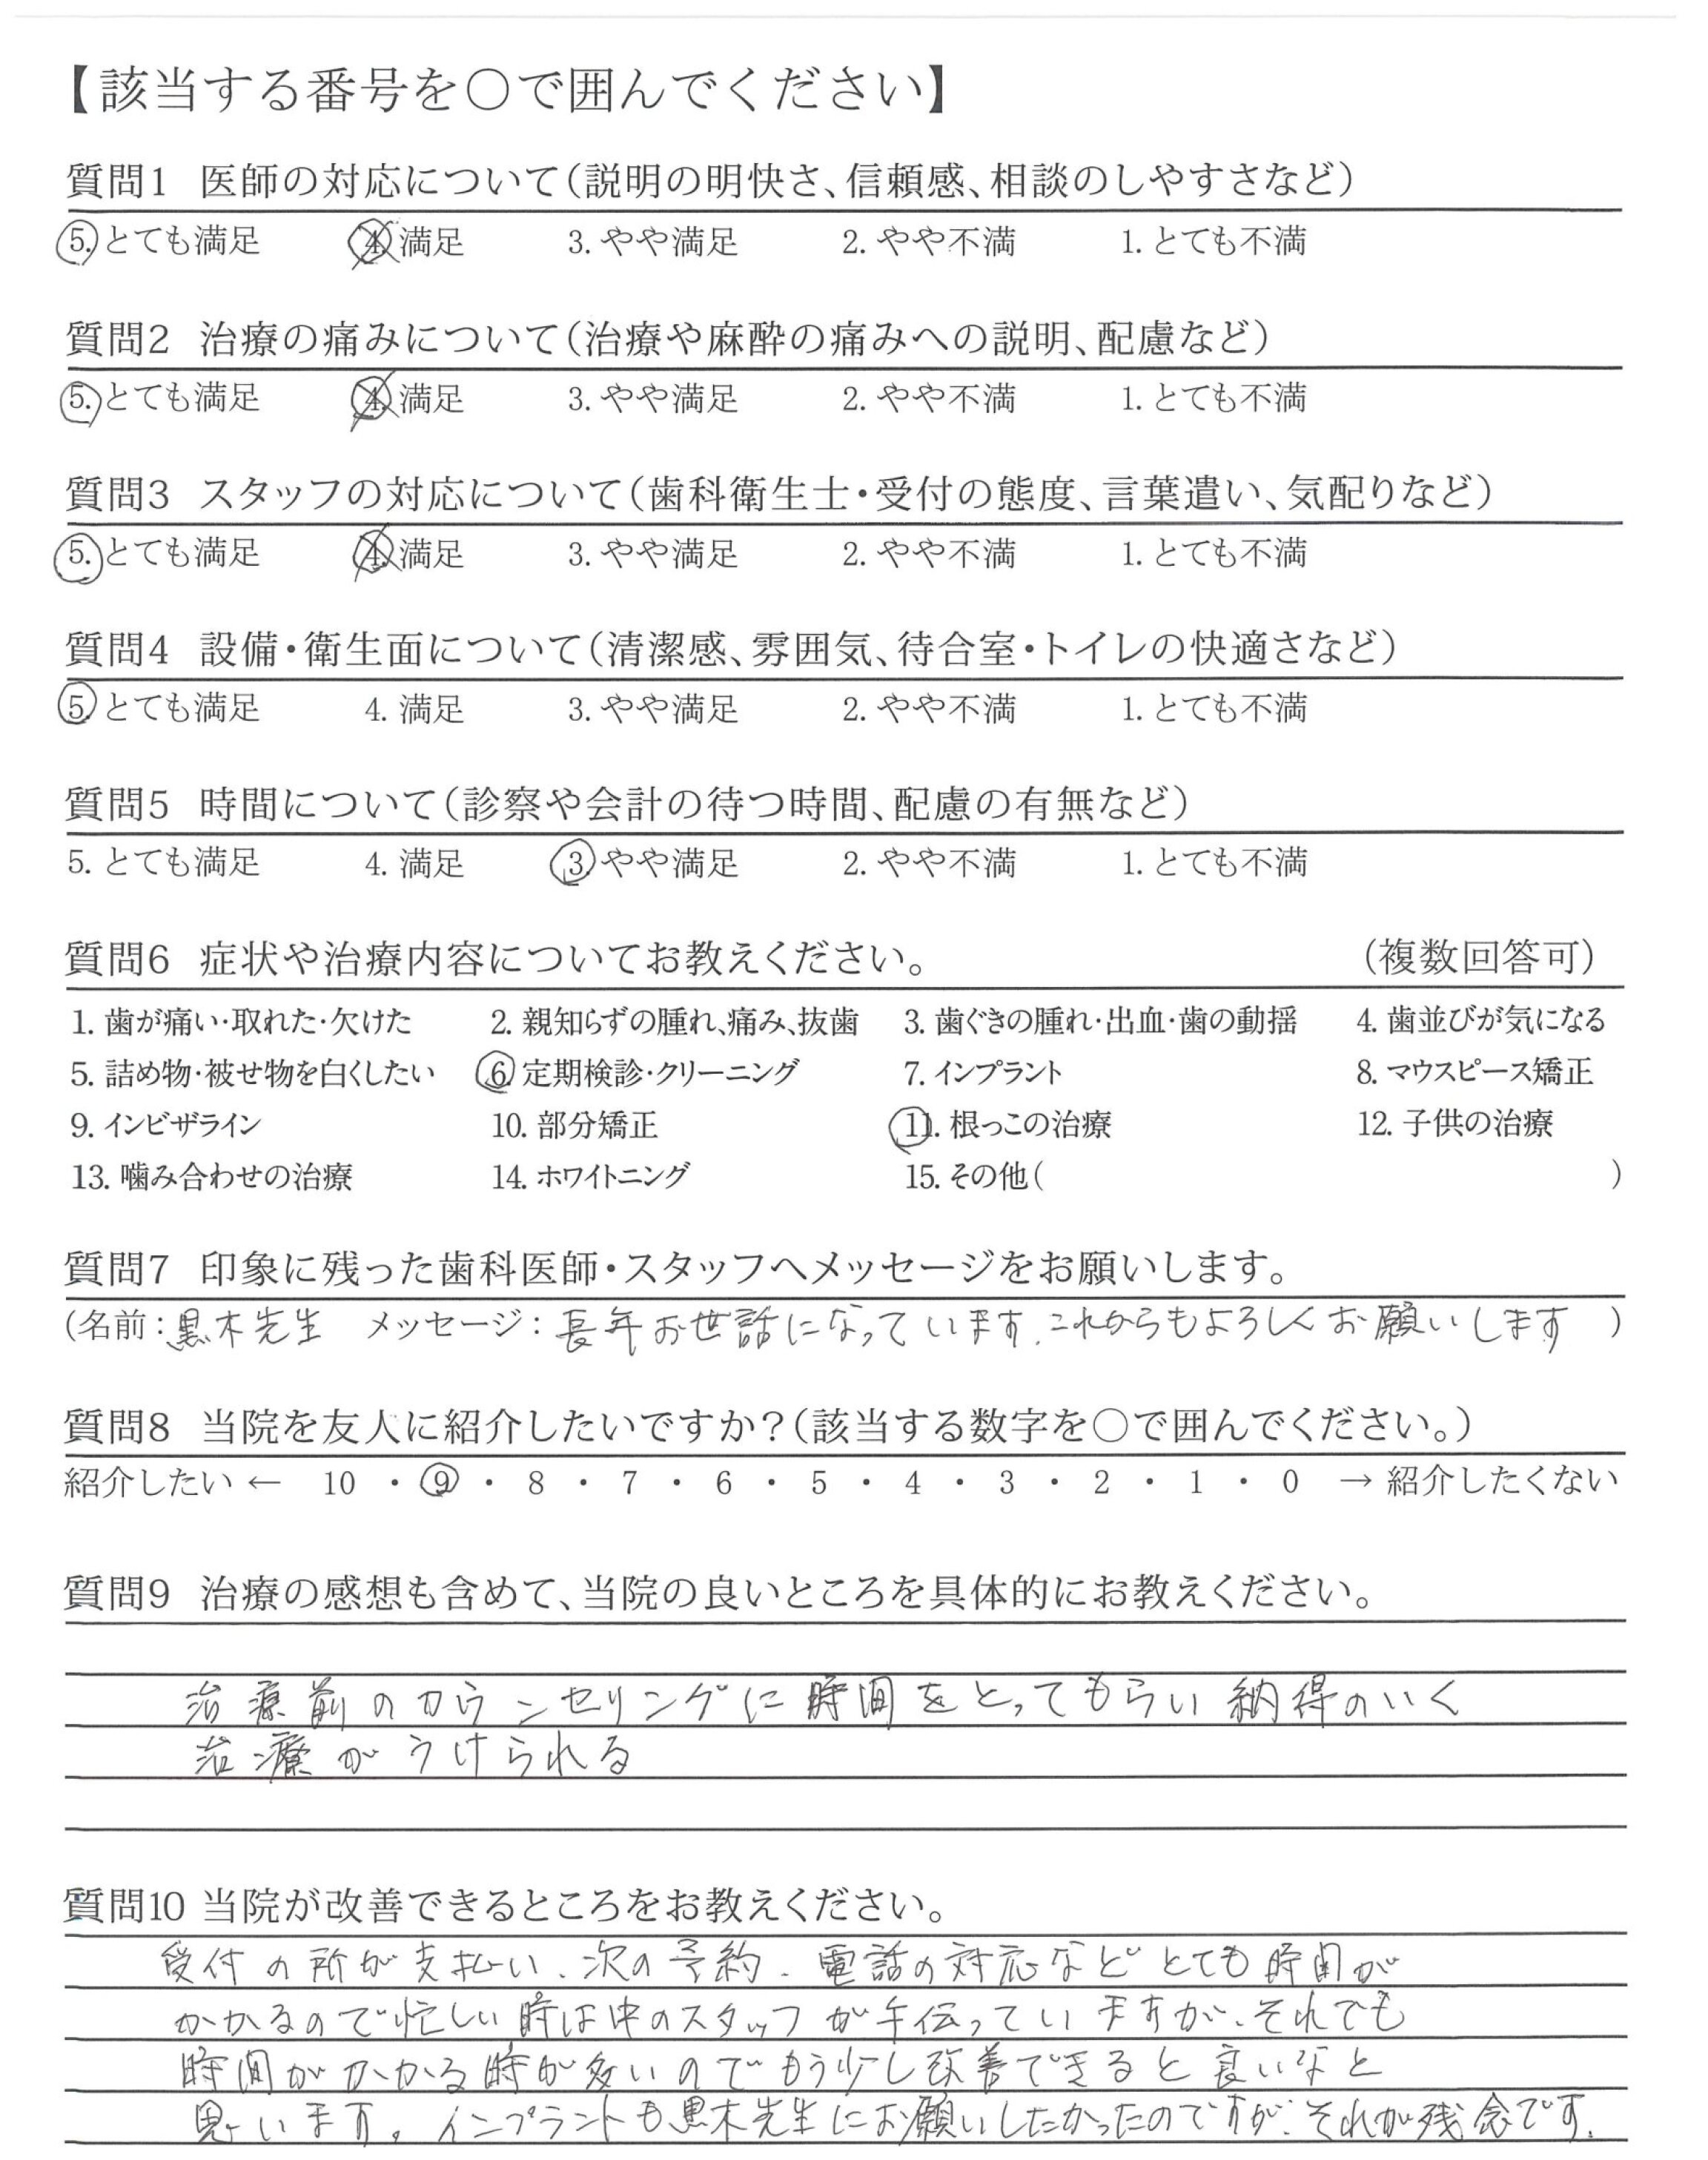 【該当する番号を○で囲んでください】
質問1 医師の対応について（説明の明快さ、信頼感、相談のしやすさなど）
5. とても満足 4. 満足 3. やや満足 2. やや不満 1. とても不満
質問2 治療の痛みについて（治療や麻酔の痛みへの説明、配慮など）
5. とても満足 4. 満足 3. やや満足 2. やや不満 1. とても不満
質問3 スタッフの対応について（歯科衛生士・受付の態度、言葉遣い、気配りなど）
5. とても満足 4. 満足 3. やや満足 2. やや不満 1. とても不満
質問4 設備・衛生面について（清潔感、雰囲気、待合室・トイレの快適さなど）
5. とても満足 4. 満足 3. やや満足 2. やや不満 1. とても不満
質問5 時間について（診察や会計の待つ時間、配慮の有無など）
5. とても満足 4. 満足 3. やや満足 2. やや不満 1. とても不満
質問6 症状や治療内容についてお教えください。 （複数回答可）
1. 歯が痛い・取れた・欠けた 2. 親知らずの腫れ、痛み、抜歯 3. 歯ぐきの腫れ・出血・歯の動揺 4. 歯並びが気になる
5. 詰め物・被せ物を白くしたい 6. 定期検診・クリーニング 7. インプラント 8. マウスピース矯正
9. インビザライン 10. 部分矯正 11. 根っこの治療 12. 子供の治療
13. 噛み合わせの治療 14. ホワイトニング 15. その他（ ）
質問7 印象に残った歯科医師・スタッフへメッセージをお願いします。
（名前：黒木先生 メッセージ：長年お世話になっています.これからもよろしくお願いします ）
質問8 当院を友人に紹介したいですか？（該当する数字を○で囲んでください。）
紹介したい ← 10 ・ 9 ・ 8 ・ 7 ・ 6 ・ 5 ・ 4 ・ 3 ・ 2 ・ 1 ・ 0 → 紹介したくない
質問9 治療の感想も含めて、当院の良いところを具体的にお教えください。
治療前のカウンセリングに時間をとってもらい納得のいく
治療がうけられる
質問10 当院が改善できるところをお教えください。
受付の所が支払い、次の予約、電話の対応などとても時間が
かかるので忙しい時は中のスタッフが手伝っていますが、それでも
時間がかかる時が多いのでもう少し改善できると良いなと
思います。インプラントも黒木先生にお願いしたかったのですが、それが残念です.